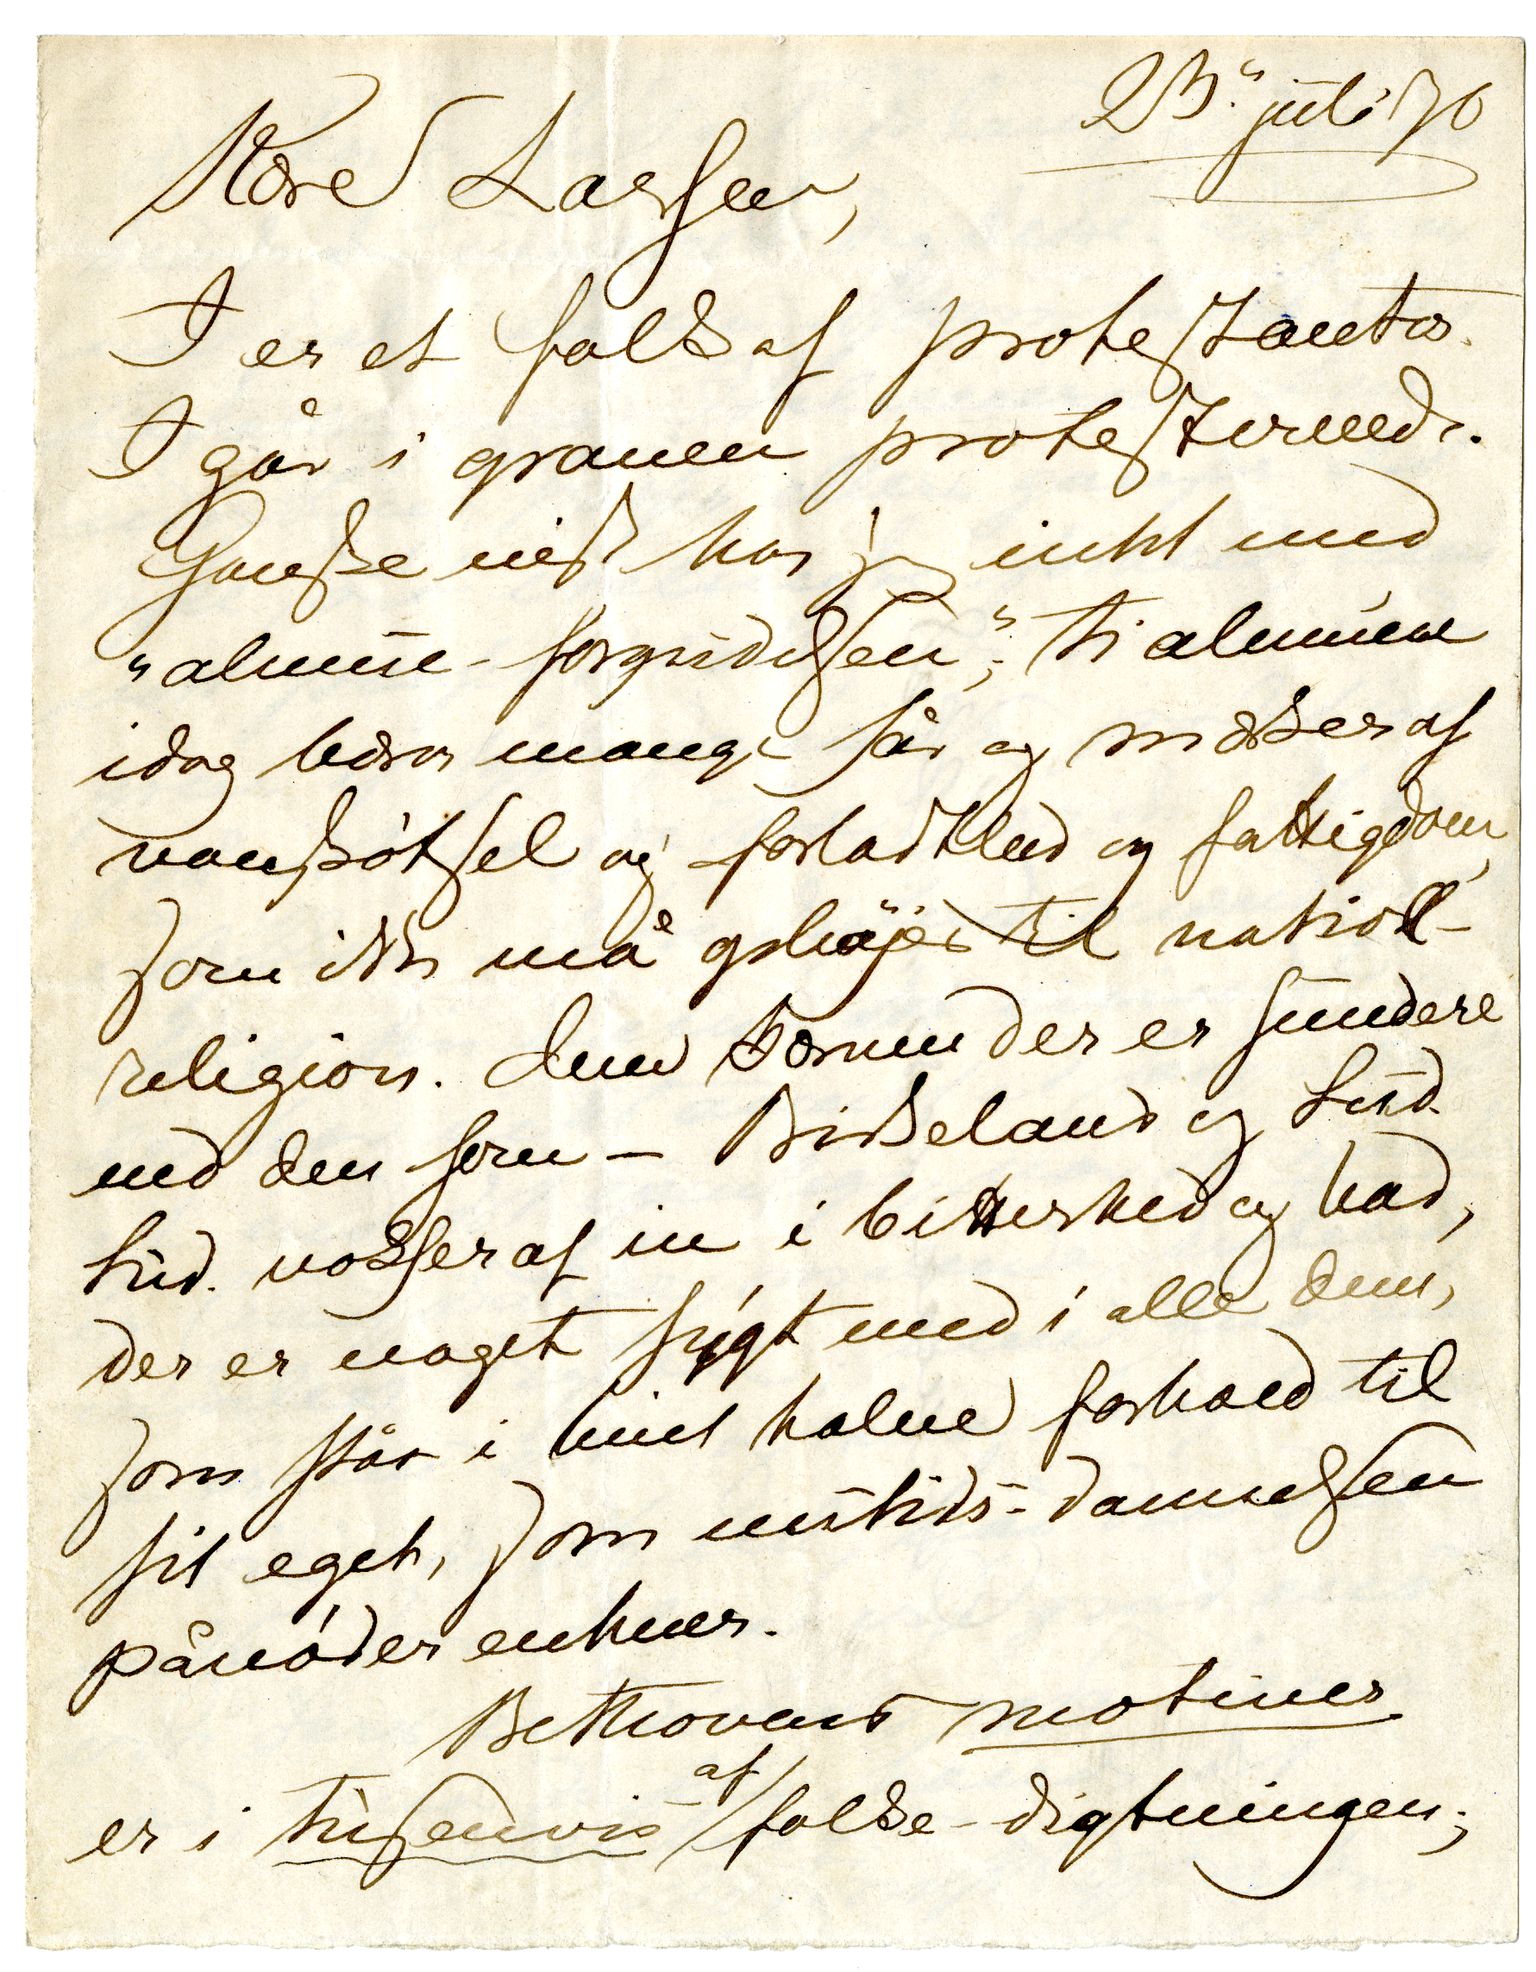 23. juli 76
Kære Larsen,
I er et folk af protestanter.
I går i graven protesterende.
Ganske vist har jeg intet med
"almue-forgudelsen"; ti almuen
idag bærer mange sår og mærker af
vanskötsel og forladthed og fattigdom,
som ikke må ophöjes til national-
religion. Men kærnen der er sundere
end den som – Birkeland og
vokser af in i bitterhed og had,
der er noget sygt med i alle dem,
som står i hint halve forhold til
sit eget, som nutids-dannelsen
pånöder enhver.
Bethovens motiver
er i tusenvis af folke-digtningen;